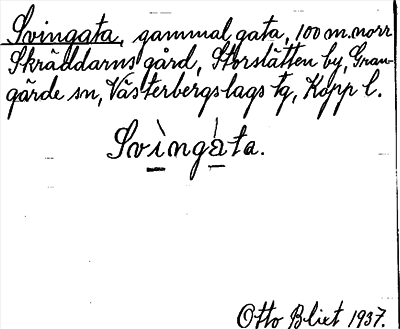 Svingata, gammal gata, 100 m. norr
Skräddarns gård, Storslätten by, Gran-
gärde sn, Västerbergslags tg, Kopp l.
Svìngàta.
Otto Blixt 1937.